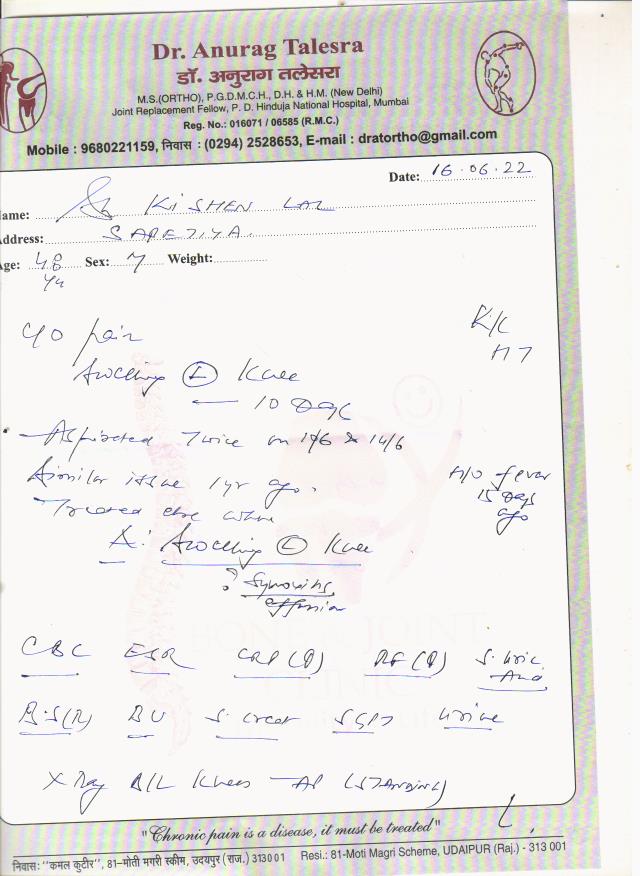 Dr. Anurag Talesra
डॉ. अनुराग तलेसरा
M.S.(ORTHO), P.G.D.M.C.H., D.H. & H.M. (New Delhi)
Joint Replacement Fellow, P. D. Hinduja National Hospital, Mumbai
Reg. No.: 016071 / 06585 (R.M.C.)
Mobile : 9680221159, निवास : (0294) 2528653, E-mail : dratortho@gmail.com
Date: 16.06.22
ame: KISHEN LAL
Address: SAPETIYA
ge: 48 Sex: M Weight:
yr
C/O pain K/C
swelling (L) Knee HT
10 days
- Aspirated Twice on & 14/6
Similar issue 1yr ago. H/O fever
15 days
ago
- Treated else where
Δ: Swelling (L) Knee
? Synovitis
effusion
CBC ESR CRP (Q) RF (Q) S. Uric
Acid
B.S(R) BU S. creat SGPT Urine
X Ray B/L Knees - AP (STANDING)
"Chronic pain is a disease, it must be treated"
निवास: "कमल कुटीर", 81-मोती मगरी स्कीम, उदयपुर (राज.) 313001 Resi.: 81-Moti Magri Scheme, UDAIPUR (Raj.) - 313 001